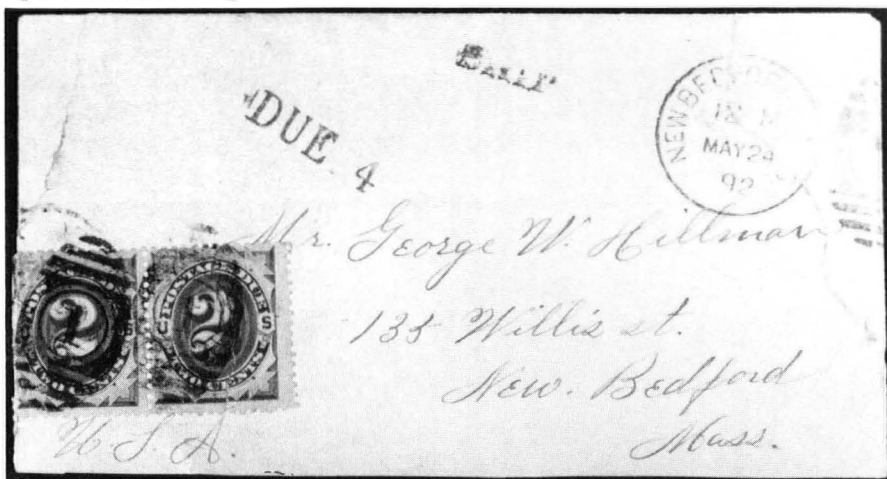 DUE 4
NEW BEDFO
MAY 24
92
Mr. George W. Hillman
135 Willis st.
New. Bedford
Mass.
U. S. A.
2
2
POSTAGE DUE
U S